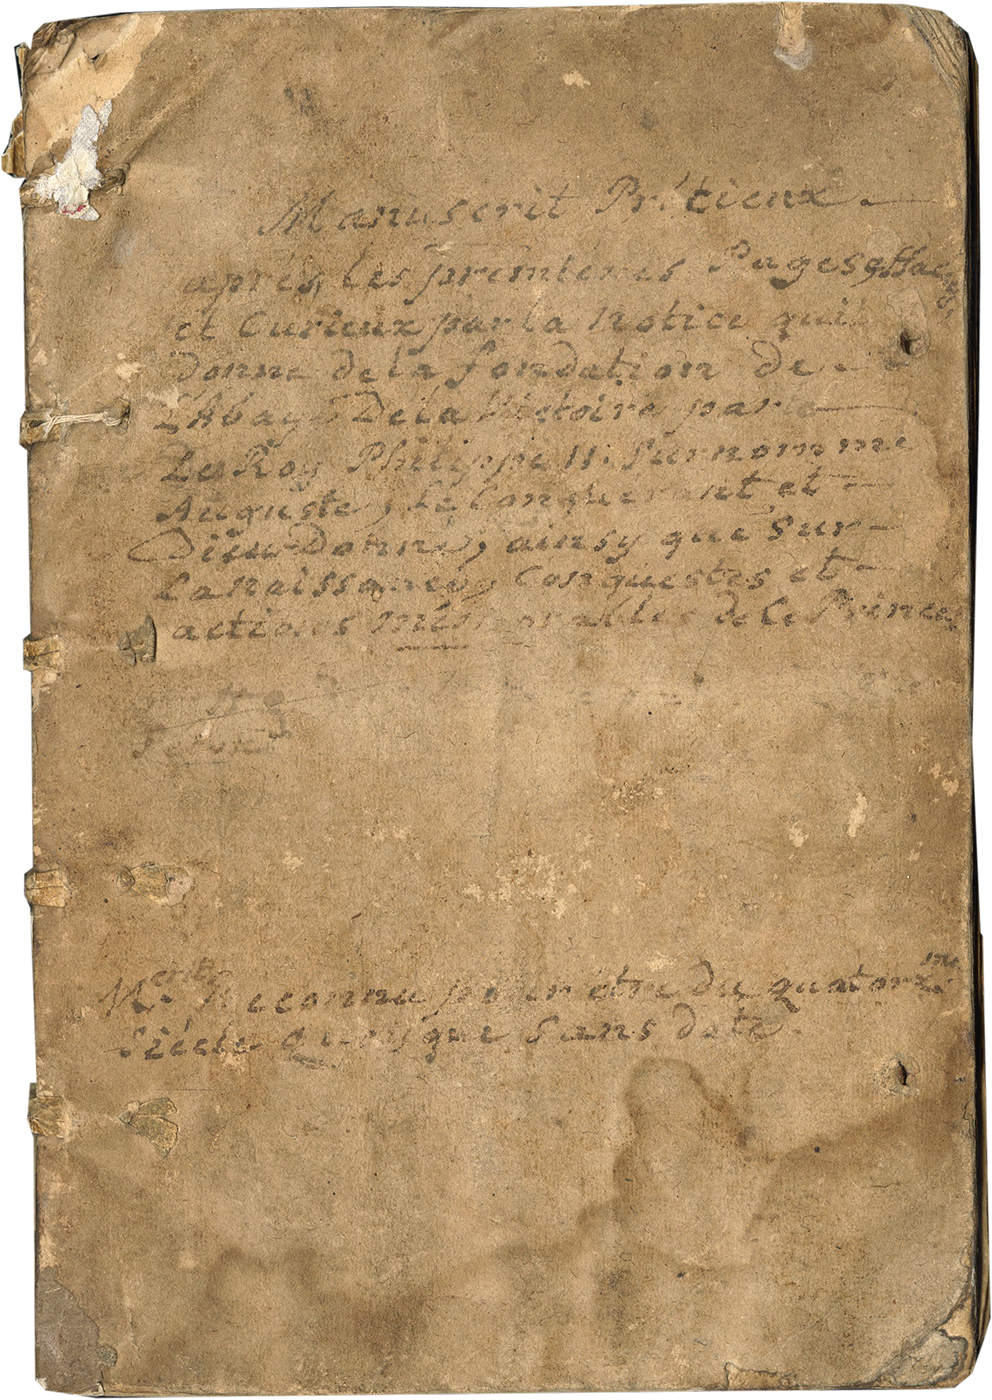 Manuscrit Prétieux
après les premieres Pages effacées
et Curieux par la Notice qui
donne de la fondation de
L'Abaye De la Victoire par le
Les Roy Philippe II. Surnommé
Auguste, le Conquerant et
Dieu-Donné, ainsy que sur
La naissance, Conquestes et
actions mémorables de le Prince
Mcrit Reconnu pour être du quatorzme
Siécle Quoisque Sans date.